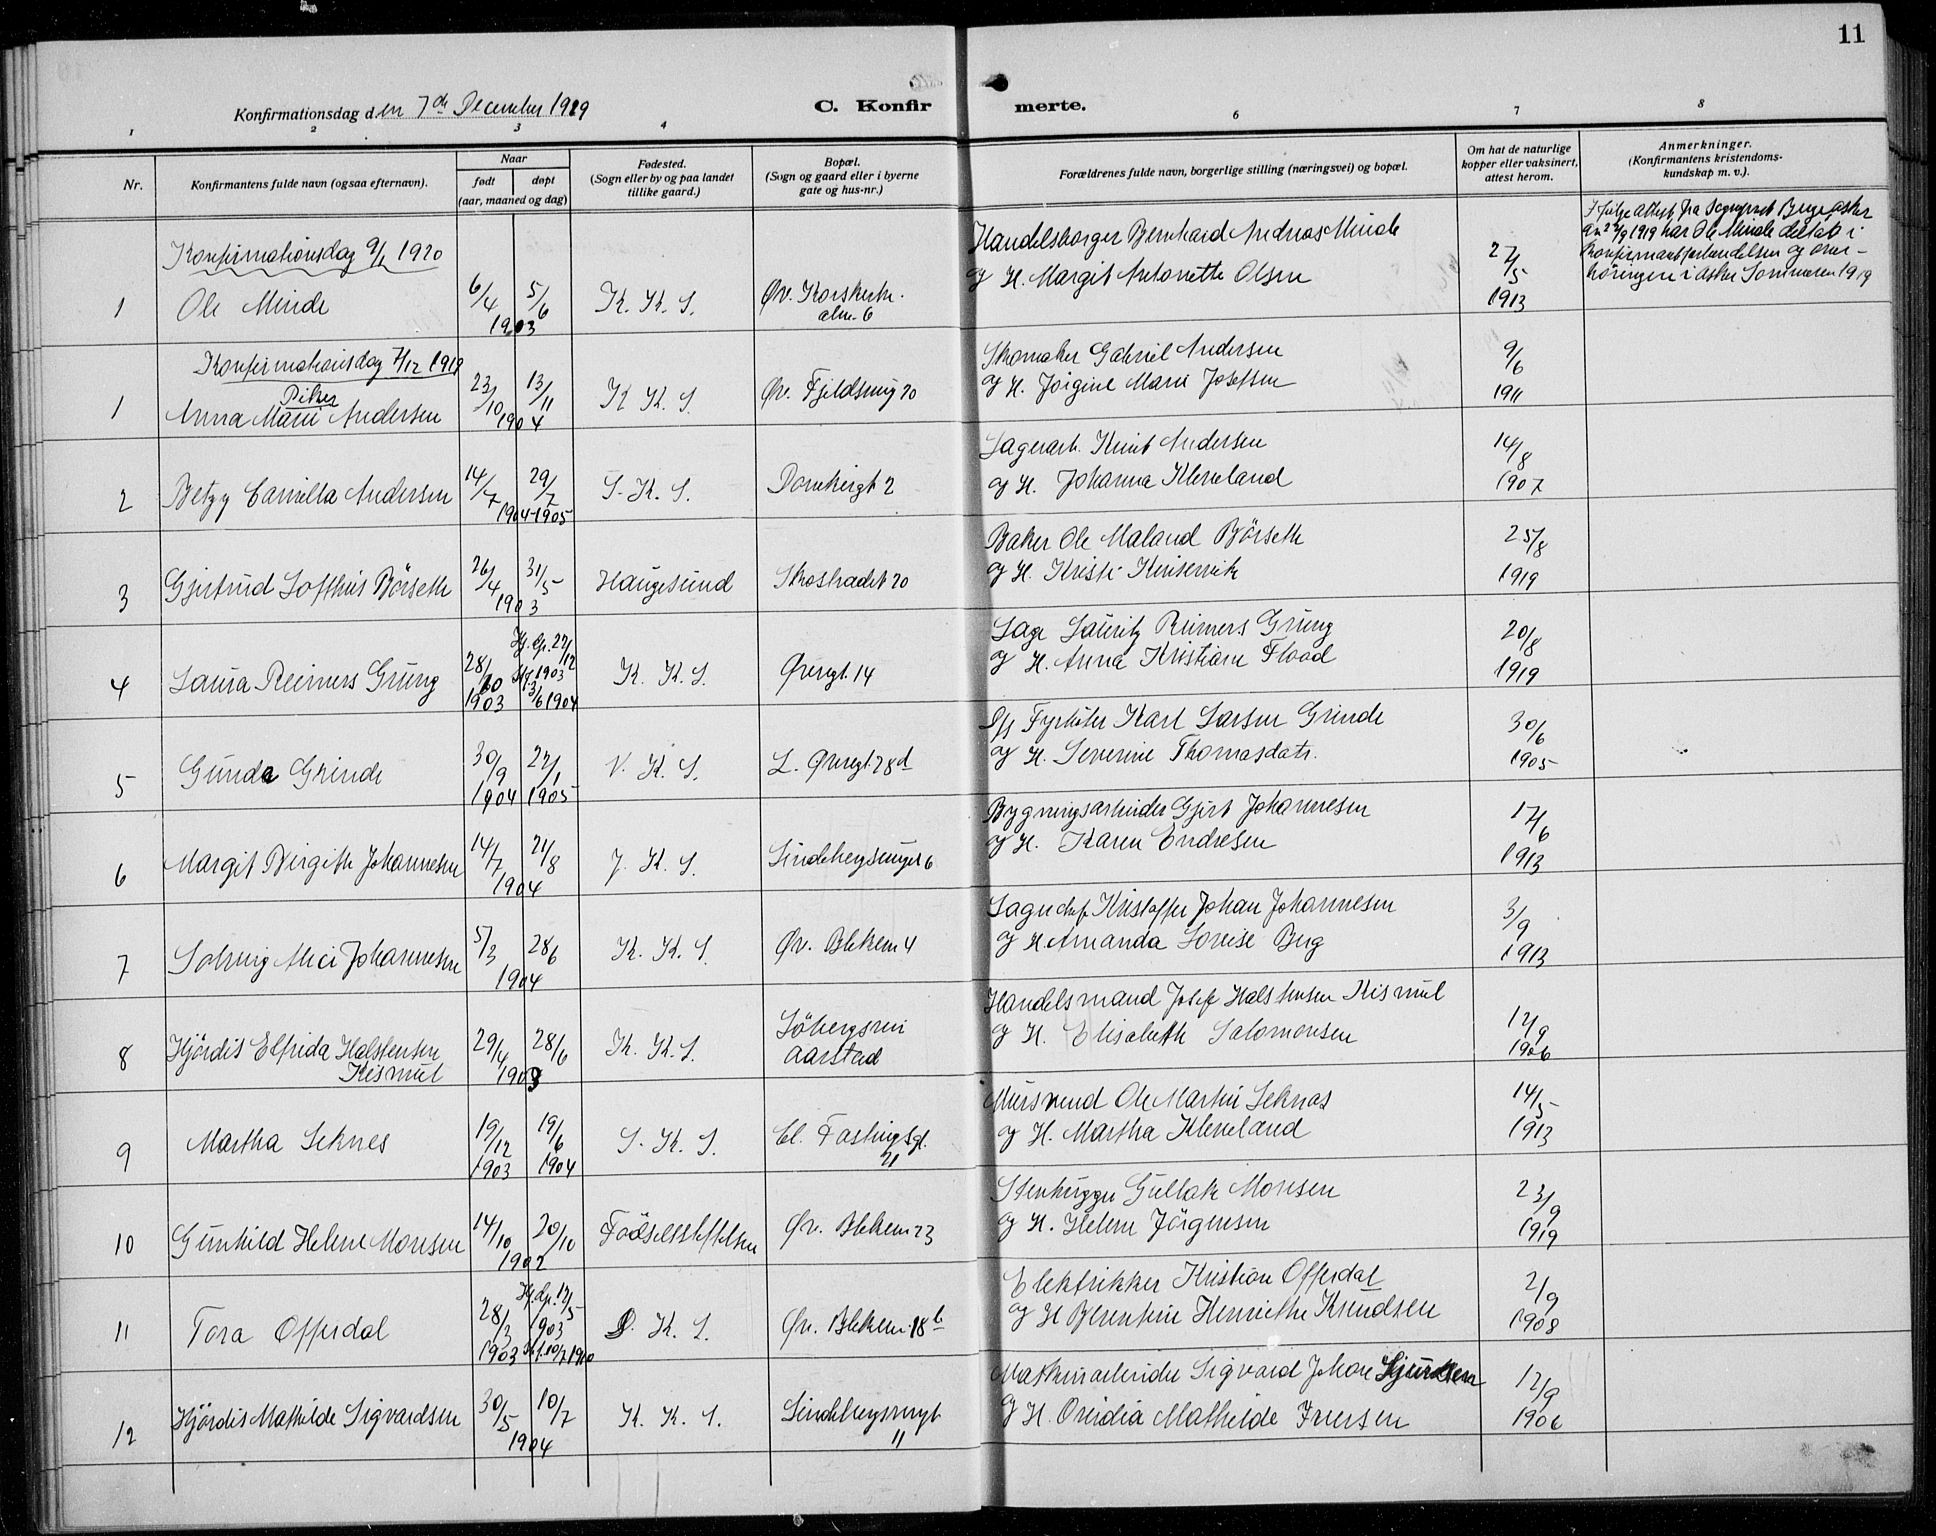 11
Konfirmationsdag den 7de December 1919
C. Konfirmerte.
1 2 3 4 6 7 8
Nr.
Konfirmantens fulde navn (ogsaa efternavn).
Naar
født døpt
(aar, maaned og dag)
Fødested.
(Sogn eller by og paa landet
tillike gaard.)
Bopæl.
(Sogn og gaard eller i byerne
gate og hus-nr.)
Forældrenes fulde navn, borgerlige stilling (næringsvei) og bopæl.
Om hat de naturlige
kopper eller vaksinert,
attest herom.
Anmerkninger.
(Konfirmantens kristendoms-
kundskap m. v.).
Konfirmationsdag 9/1 1920
1 Ole Minde 6/4 5/6 1903 K. K. S. Øv. Korskirke
alm. 6
Handelsborger Bernhard Andreas Minde
og H. Margit Antonette Olsen
27/5
1913
Ifølge attest fra Sogneprest
27/9 1919 har Ole Minde deltat i
Konfirmantforberedelsen og over-
høringen i Asker Sommeren 1919
Konfirmationsdag 7/12 1919
Piker
1 Anna Marie Andersen 23/10 13/11 1904 K. K. S. Øv. Fjeldsmug 20
Skomaker Gabriel Andersen
og H. Jørgine Marie Josefsen
9/6
1911
2 Betzy Camilla Andersen 14/7 1904 29/7 1905 S. K. S. Domkirkgt 2
Lagerarb. Knut Andersen
og H. Johanna Kleveland
14/8
1907
3 Gjertrud Lofthus Børseth 26/4 31/5 1903 Haugesund Skostrædet 20
Baker Ole Maland Börseth
og H. Kristi Kinservik
25/8
1919
4 Laura Reimers Grung 28/10 1903 Hj. dp. 27/12 1903 Stf. 3/6 1904 K. K. S. Øvregt. 14
Læge Lauritz Reimers Grung
og H. Anna Kristiane Flood
20/8
1919
5 Gunda Grinde 30/9 1904 22/1 1905 N. K. S. L. Øvregt. 28d
Fyrbøter Karl Larsen Grinde
og H. Severine Thomasdatr.
30/6
1905
6 Margit Birgithe Johannesen 14/7 21/8 1904 J. K. S. Lindebergsmuget 6
Bygningsarbeider Gjert Johannesen
og H. Karen Endresen
17/6
1913
7 Solveig Alice Johannesen 5/3 28/6 1904 K. K. S. Øv. Blekevn 4
Lagerchef Kristoffer Johan Johannesen
og H. Amanda Lovise Berg
3/9
1913
8 Hjördis Elfrida Halstensen
Kismul 29/4 28/6 1903 K. K. S. Löbergsvei
Aarstad
Handelsmand Josef Halstensen Kismul
og H. Elisabeth Salomonsen
12/9
1906
9 Martha Seknes 19/12 1903 19/6 1904 S. K. S. Cl. Fastingsgt.
21
Mursvend Ole Martin Seknes
og H. Martha Kleveland
14/5
1913
10 Gunhild Helene Monsen 14/10 20/10 1902 Födselsstiftelsen Øv. Blekevn 23
Stenhugger Gullak Monsen
og H. Helene Jörgensen
23/9
1919
11 Tora Offerdal 28/3 1903 Hj. dp. 12/5 1903 Stf. 10/7 1910 D. K. S. Øv. Blekevn 18b
Elektrikker Kristian Offerdal
og H Berentine Henriette Knudsen
2/9
1908
12 Hjördis Mathilde Sigvardsen 30/5 10/7 1904 K. K. S. Lindebergsmugt
11
Maskinarbeider Sigvard Johan
og H. Ovidia Mathilde Iversen
12/9
1906